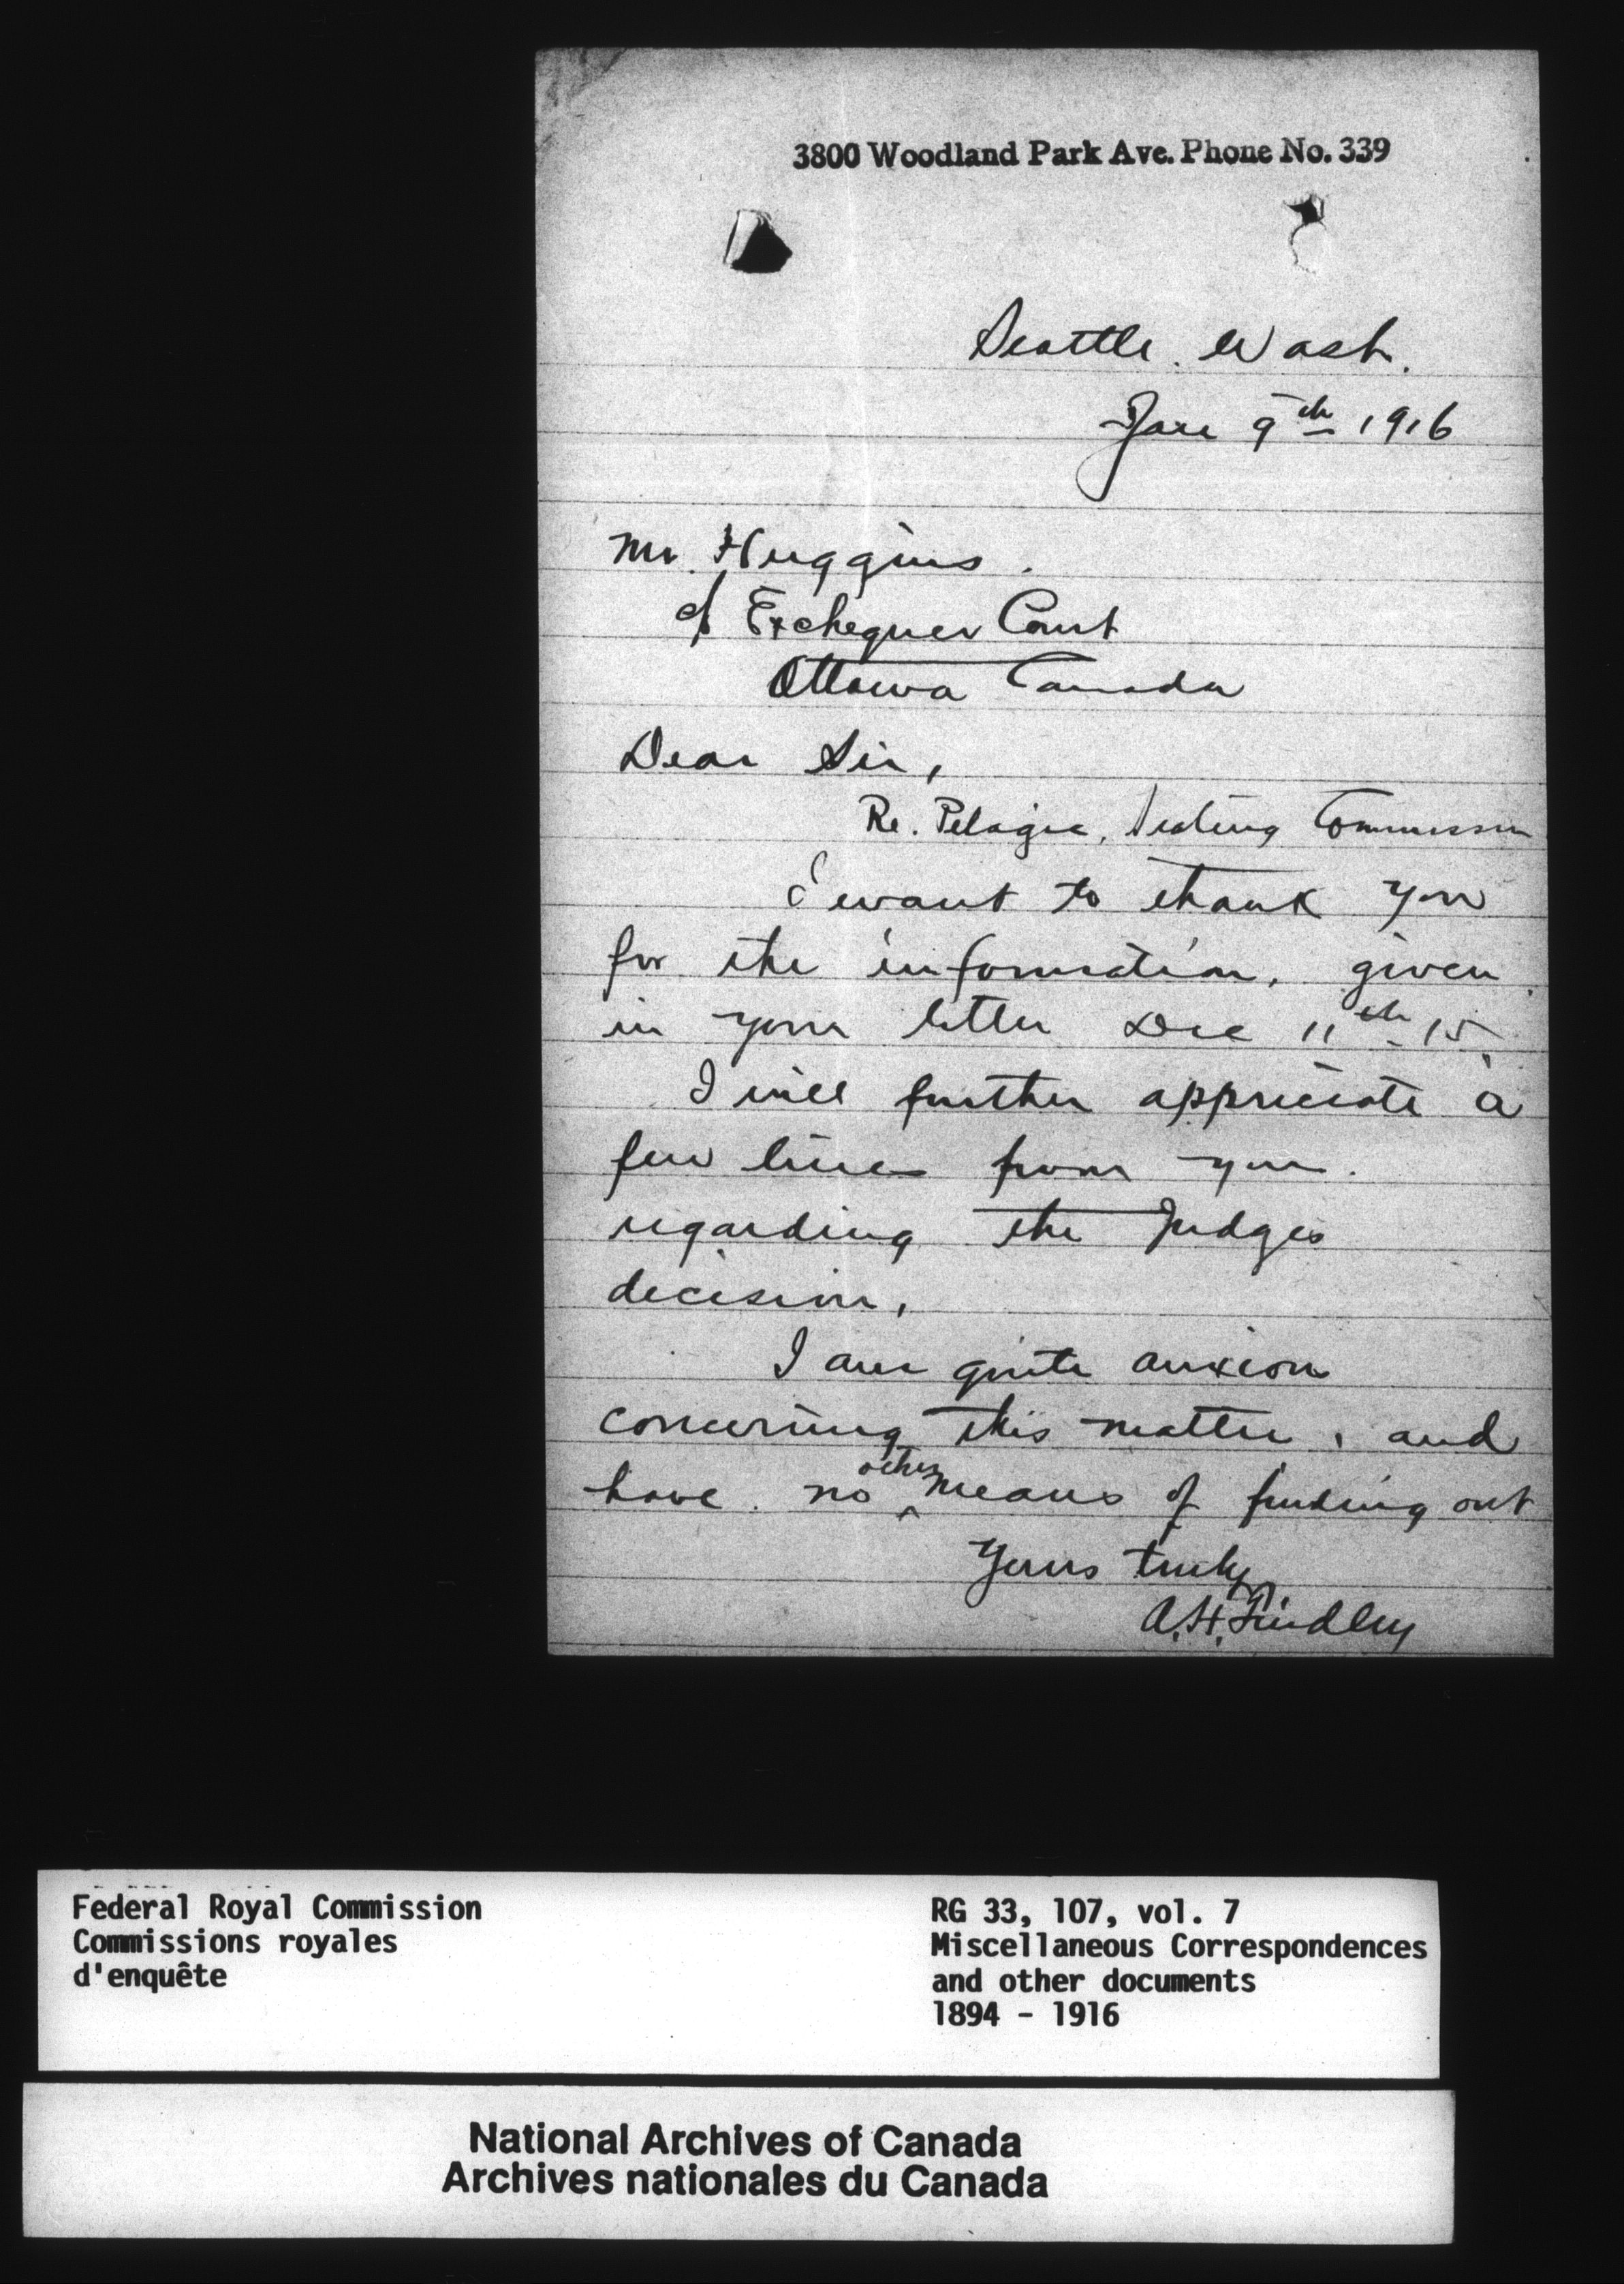 3800 Woodland Park Ave. Phone No. 339
Seattle. Wash.
Jan 9th 1916
Mr. Huggins.
c/o Exchequer Court
Ottawa Canada
Dear Sir,
Re. Pelagic, Sealing Commission
I want to thank you
for the information, given
in your letter Dec 11th 15.
I will further appriciate a
few lines from you.
regarding the Judges
decision,
I am quite anxious
concerning this matter, and
have no other means of finding out
Yours truly
A.H. Findley
Federal Royal Commission
Commissions royales
d'enquête
RG 33, 107, vol. 7
Miscellaneous Correspondences
and other documents
1894 - 1916
National Archives of Canada
Archives nationales du Canada